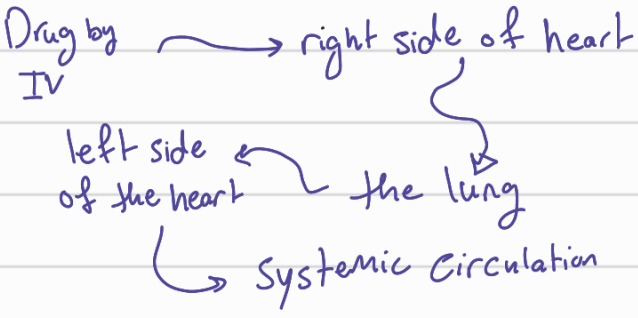 Drug by
IV
right side of heart
the lung
left side
of the heart
systemic circulation